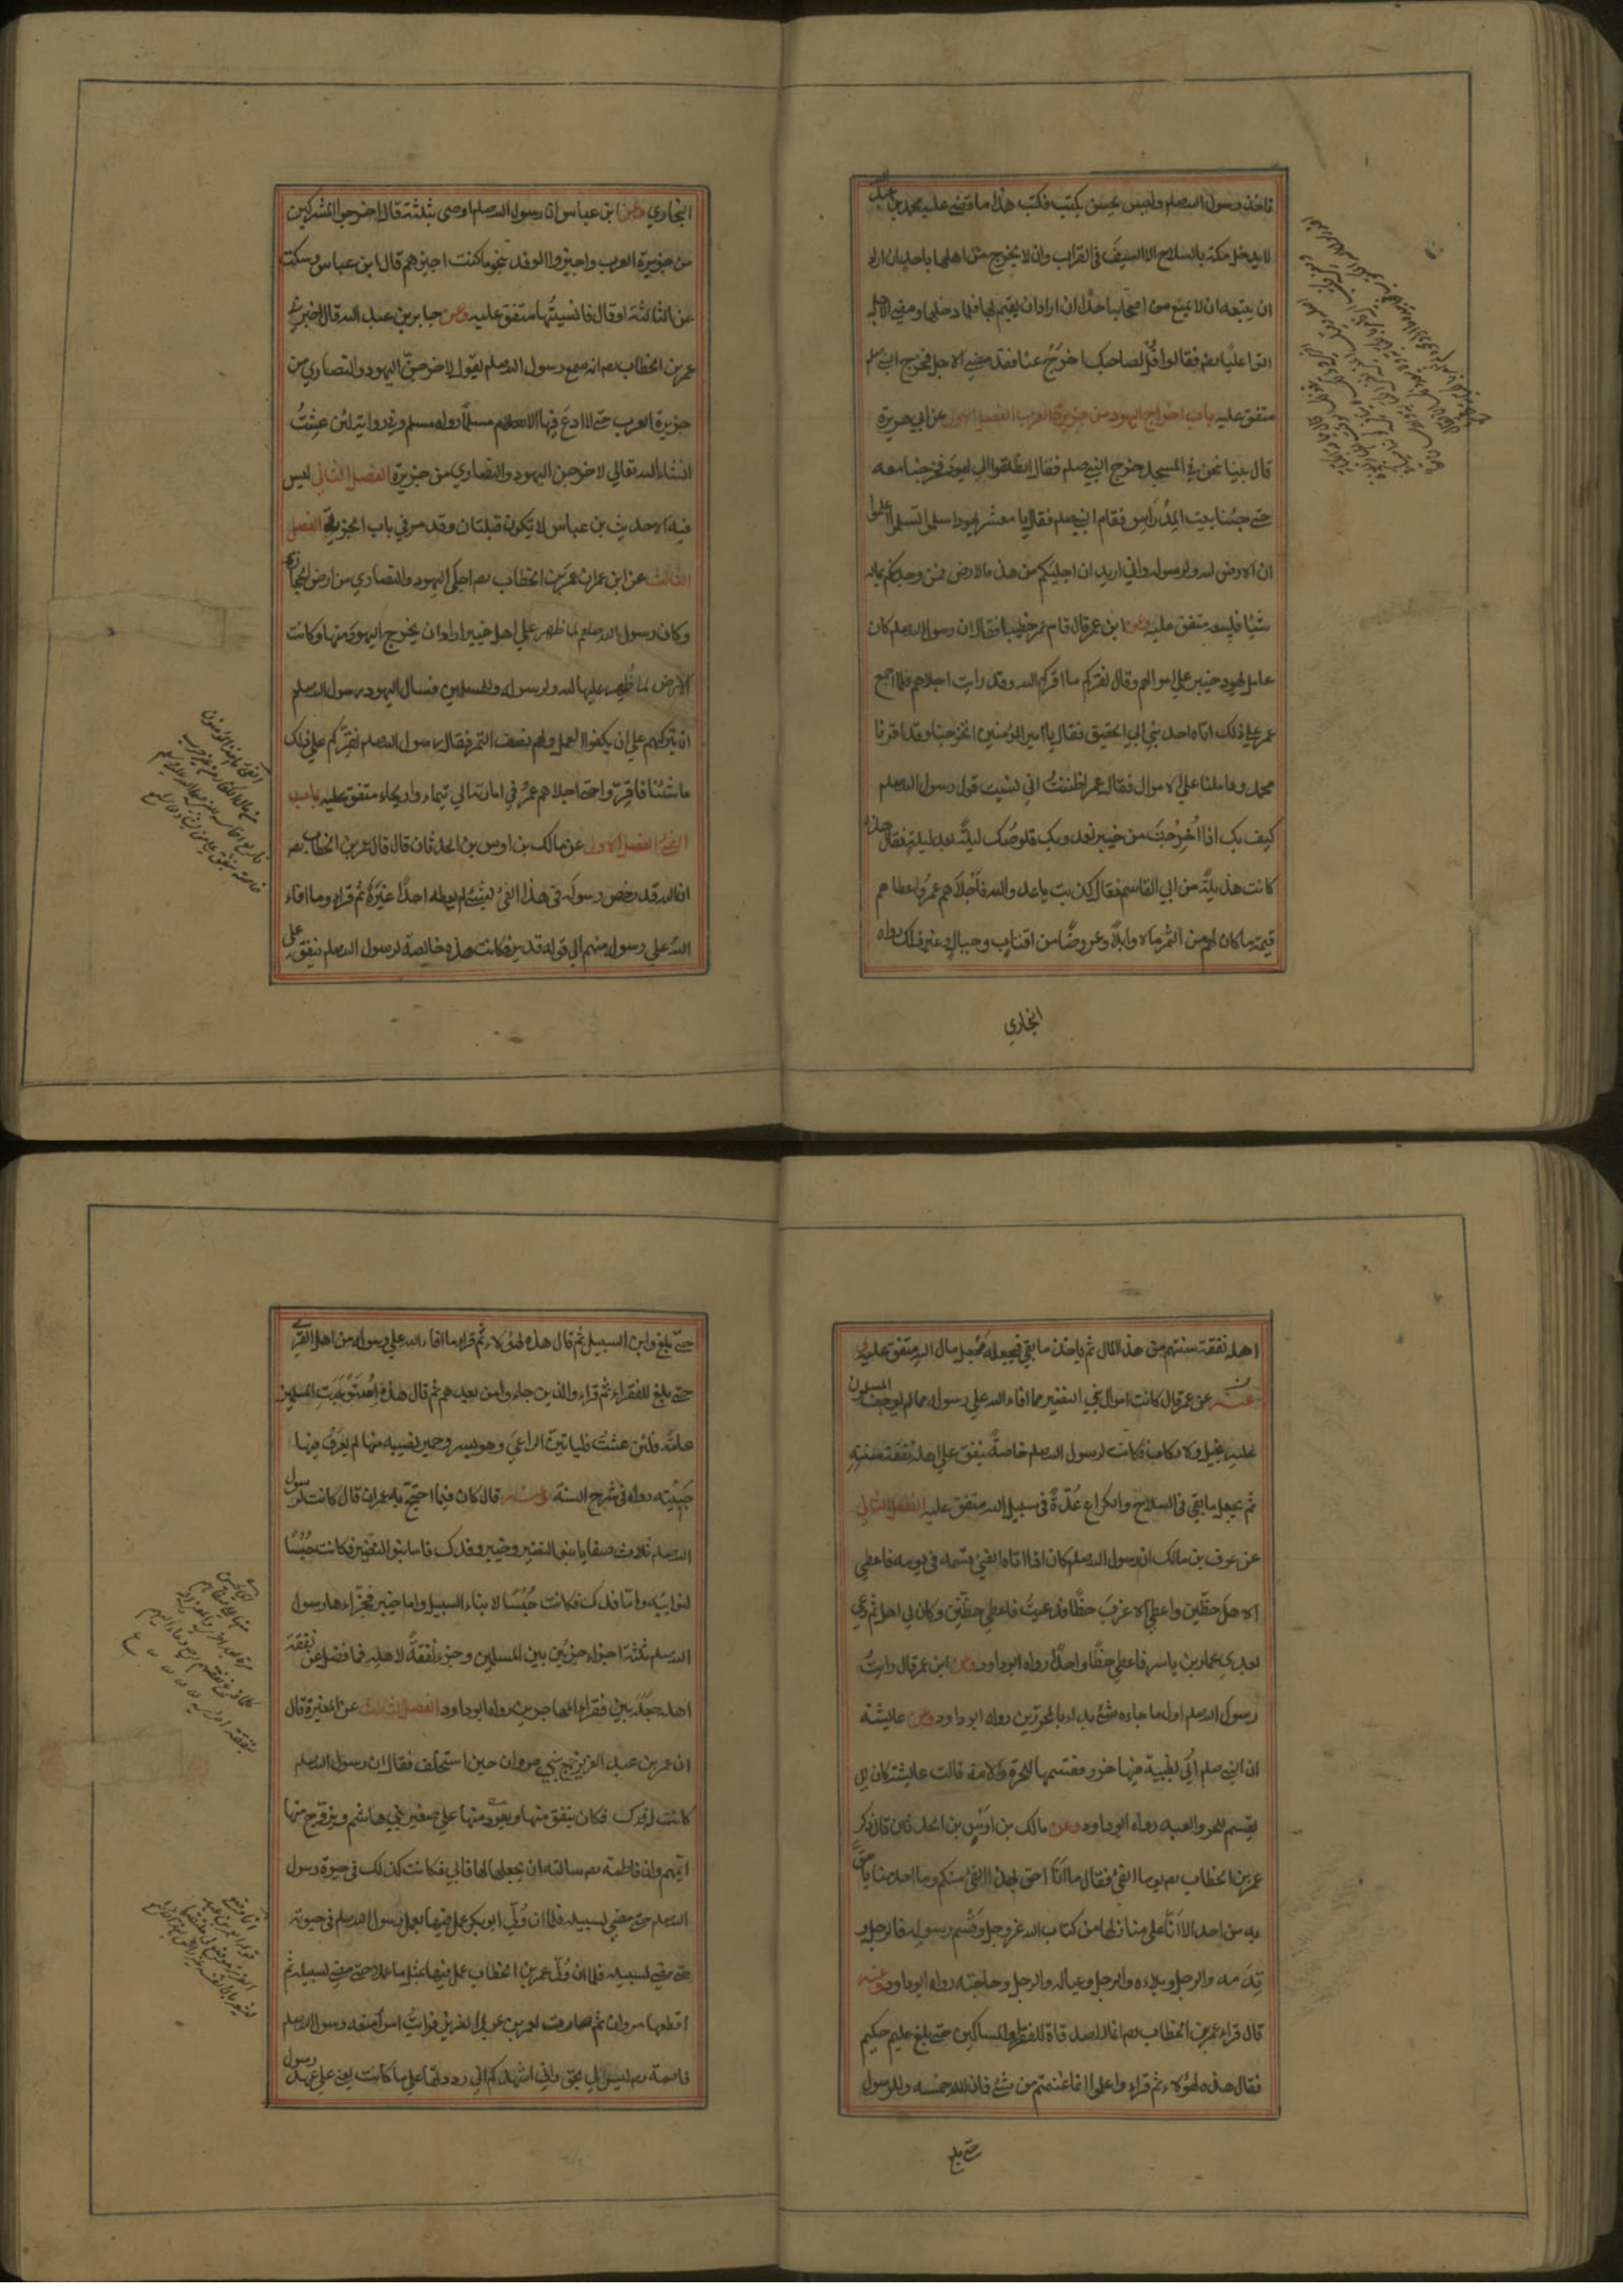 فاخذ رسول الله صلم وليس يحسن يكتب فكتب هذا ما قضى عليه محمد بن عبد الله
لا يدخل مكة بالسلاح الا السيف في القراب وان لا يخرج من اهلها باحد ان اراد
ان يتبعه وان لا يمنع من اصحابه احدا ان اراد ان يقيم بها فلما دخلها ومضى الاجل
اتوا عليا رضه فقالوا قل لصاحبك اخرج عنا فقد مضى الاجل فخرج النبي صلم
متفق عليه باب اخراج اليهود من جزيرة العرب الفصل الاول عن ابي هريرة
قال بينا نحن في المسجد خرج النبي صلم فقال انطلقوا الى يهود فخرجنا معه
حتى جئنا بيت المِدْرَاسِ فقام النبي صلم فقال يا معشر يهود اسلموا تسلموا اعلموا
ان الارض لله ولرسوله واني اريد ان اجليكم من هذه الارض فمن وجد منكم بماله
شيئا فليبعه متفق عليه وعن ابن عمر قال قام عمر خطيبا فقال ان رسول الله صلم كان
عامل يهود خيبر على اموالهم وقال نقركم ما اقركم الله وقد رايت اجلاءهم فلما اجمع
عمر على ذلك اتاه احد بني ابي الحقيق فقال يا امير المؤمنين اتخرجنا وقد اقرنا
محمد وعاملنا على الاموال فقال عمر اظننتَ اني نسيت قول رسول الله صلم
كيف بك اذا اُخْرِجْتَ من خيبر تعدو بك قلوصُك ليلةً بعد ليلة فقال هذه
كانت هزيلةً من ابي القاسم فقال كذبت يا عدو الله فاَجْلَاهم عمرُ واعطاهم
قيمة ما كان لهم من الثمر مالا وابلاً وعروضًا من اقتاب وحبال وغير ذلك رواه
البخاري
البخاري وعن ابن عباس ان رسول الله صلم اوصى بثلثة قال اخرجوا المشركين
من جزيرة العرب واجيزوا الوفد بنحو ما كنت اجيزهم قال ابن عباس وسكت
عن الثالثة او قال فانسيتُها متفق عليه وعن جابر بن عبد الله قال اخبرني
عمر بن الخطاب رضه انه سمع رسول الله صلم يقول لاخرجنّ اليهود والنصارى من
جزيرة العرب حتى لا ادعَ فيها الا مسلمًا رواه مسلم وفي رواية لئن عِشْتُ
انشاء الله تعالى لاخرجن اليهود والنصارى من جزيرة العرب الفصل الثاني ليس
فيه الا حديث بن عباس لا تكون قبلتان وقد مر في باب الجزية الفصل
الثالث عن ابن عمر ان عمرَ بن الخطاب رضه اجلى اليهود والنصارى من ارض الحجاز
وكان رسول الله صلعم لما ظهر على اهل خيبر اراد ان يخرج اليهود منها وكانت
الارض لما ظُهِر عليها لله ولرسوله وللمسلمين فسال اليهود رسول الله صلم
ان يتركهم على ان يكفوا العمل ولهم نصف الثمر فقال رسول الله صلم نقركم على ذلك
ما شئنا فاُقِرّوا حتى اجلاهم عمرُ في امارته الى تيماء واريحاء متفق عليه باب
الفئ الفصل الاول عن مالك بن اوس بن الحدثان قال قال عمر بن الخطاب رضه
ان الله قد خص رسوله في هذا الفئ بشئ لم يعطه احدًا غيرَه ثم قرا وما افاء
الله على رسوله منهم الى قوله قدير فكانت هذه خالصة لرسول الله صلم ينفق على
اهله نفقة سنتهم من هذا المال ثم ياخذ ما بقي فيجعله مَجعل مال الله متفق عليه و
عنه عن عمر قال كانت اموال بني النضير مما افاء الله على رسوله مما لم يوجف المسلمون
عليه بخيل ولا ركاب فكانت لرسول الله صلم خاصةً ينفق على اهله نفقة سنته
ثم يجعل ما بقي في السلاح والكراع عُدّةً في سبيل الله متفق عليه الفصل الثاني
عن عوف بن مالك ان رسول الله صلم كان اذا اتاه الفئ قسمه في يومه فاعطى
الاهلَ حظّين واعطى الاعزبَ حظًا فدعيتُ فاعطى حظّين وكان لي اهل ثم دعي
بعدي عمار بن ياسر فاعطى حظًا واحدًا رواه ابوداود وعن ابن عمر قال رايتُ
رسول الله صلم اول ما جاءه شئ بدا بالمحررين رواه ابو داود وعن عايشة
ان النبي صلم اُتي بظبية فيها خرز فقسمها للحرة والامة قالت عايشة كان ابي
يقسم للحر والعبد رواه ابوداود وعن مالك بن اَوْسِ بن الحدثان قال ذكر
عمر بن الخطاب رضه يوما الفئ فقال ما اَنَا احق بهذا الفئ منكم وما احد منا باحقَّ
به من احد الا اَنَّا على منازلنا من كتاب الله عز وجل وقَسْمِ رسوله فالرجل و
قِدَمه والرجل وبلاءه والرجل وعياله والرجل وحاجته رواه ابوداود وعنه
قال قراء عمر بن الخطاب رضه انما الصدقات للفقراء والمساكين حتى بلغ عليم حكيم
فقال هذه لهؤلاء ثم قراء واعلموا انما غنمتم من شئ فان لله خمسه وللرسول
حتى بلغ
حتى بلغ وابن السبيل ثم قال هذه لهؤلاء ثم قراء ما افاء الله على رسوله من اهل القرى
حتى بلغ للفقراء ثم قراء والذين جاءوا من بعدهم ثم قال هذه اِسْتَوْعَبَتِ المسلمين
عامةً فلئن عشتُ فلياتينّ الراعيَ وهو بسرو حمير نصيبه منها لم يعرَقْ فيها
جبينه رواه في شرح السنة وعنه قال كان فيما احتج به عمر ان قال كانت لرسول
الله صلم ثلاث صفايا بنو النضير وخيبر وفدك فاما بنو النضير فكانت حُبُسًا
لنوائبه واما فدك فكانت حُبُسًا لابناء السبيل واما خيبر فجزاءها رسول
الله صلم ثلثة اجزاء جزئين بين المسلمين وجزء نفقةً لاهله فما فضل عن نفقة
اهله جعَلَه بين فقراء المهاجرين رواه ابوداود الفصل الثالث عن المغيرة قال
ان عمر بن عبد العزيز جمع بني مروان حين استخلف فقال ان رسول الله صلم
كانت له فدك فكان ينفق منها ويعود منها على صغير بني هاشم ويزوّج منها
ايّمهم وان فاطمة رضه سالته ان يجعلها لها فابى فكانت كذلك في حيوة رسول
الله صلم حتى مضى لسبيله فلما ان وُلّي ابوبكر عمل فيها بما عمل رسول الله صلم في حيوته
حتى مضى لسبيله فلما ان وُلّي عمر بن الخطاب عمل فيها بمثل ما عملا حتى مضى لسبيله ثم
اقطعها مروان ثم صارت لعمر بن عبد العزيز فرايتُ امرا منعه رسول الله صلم
فاطمة رضه ليس لي بحق واني اشهدكم اني رددتها على ما كانت يعني على عهد رسول